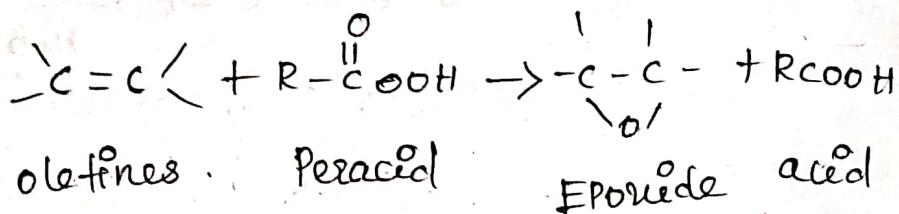 O
>C=C< + R-C OOH → -C-C- + RCOOH
O
olefines. Peracid Epoxide acid